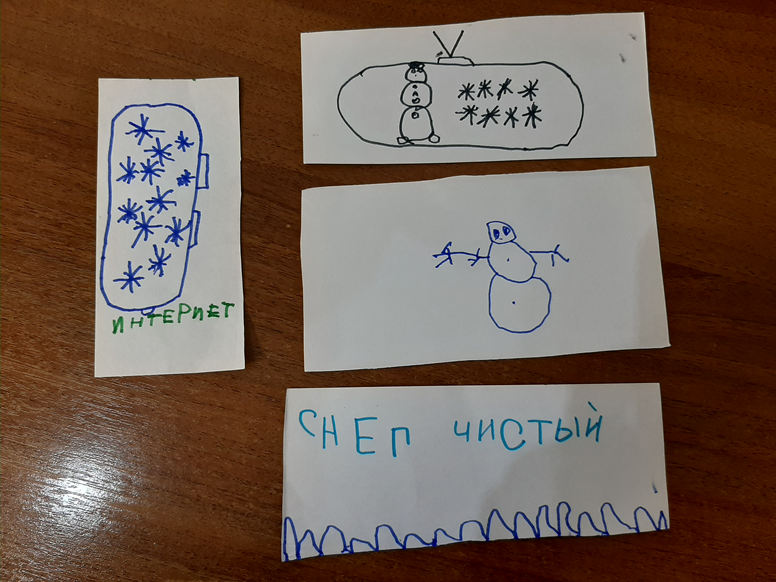 ИНТЕРНЕТ
СНЕГ ЧИСТЫЙ